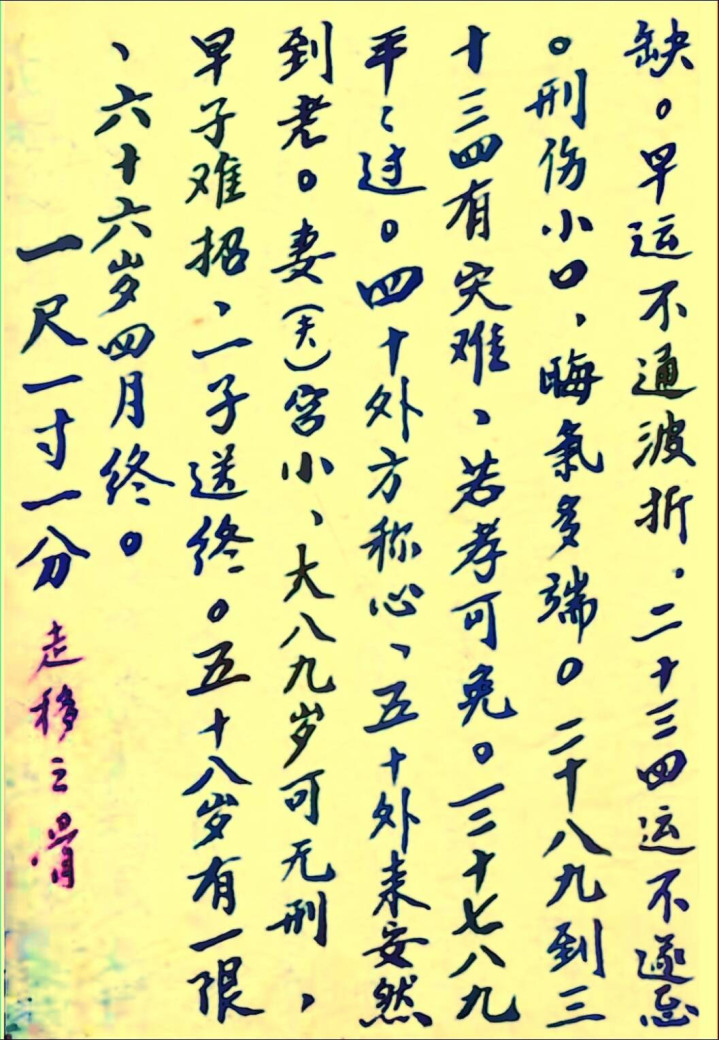 缺。早运不通波折.二十三四运不遂意
。刑伤小口、晦氣多端。二十八九到三
十三四有灾难、若孝可免。三十七八九
平〻过。四十外方称心、五十外来安然
到老。妻(夫)宫小、大八九岁可无刑,
早子难招、一子送终。五十八岁有一限
、六十六岁四月终。
一尺一寸一分 走移之骨